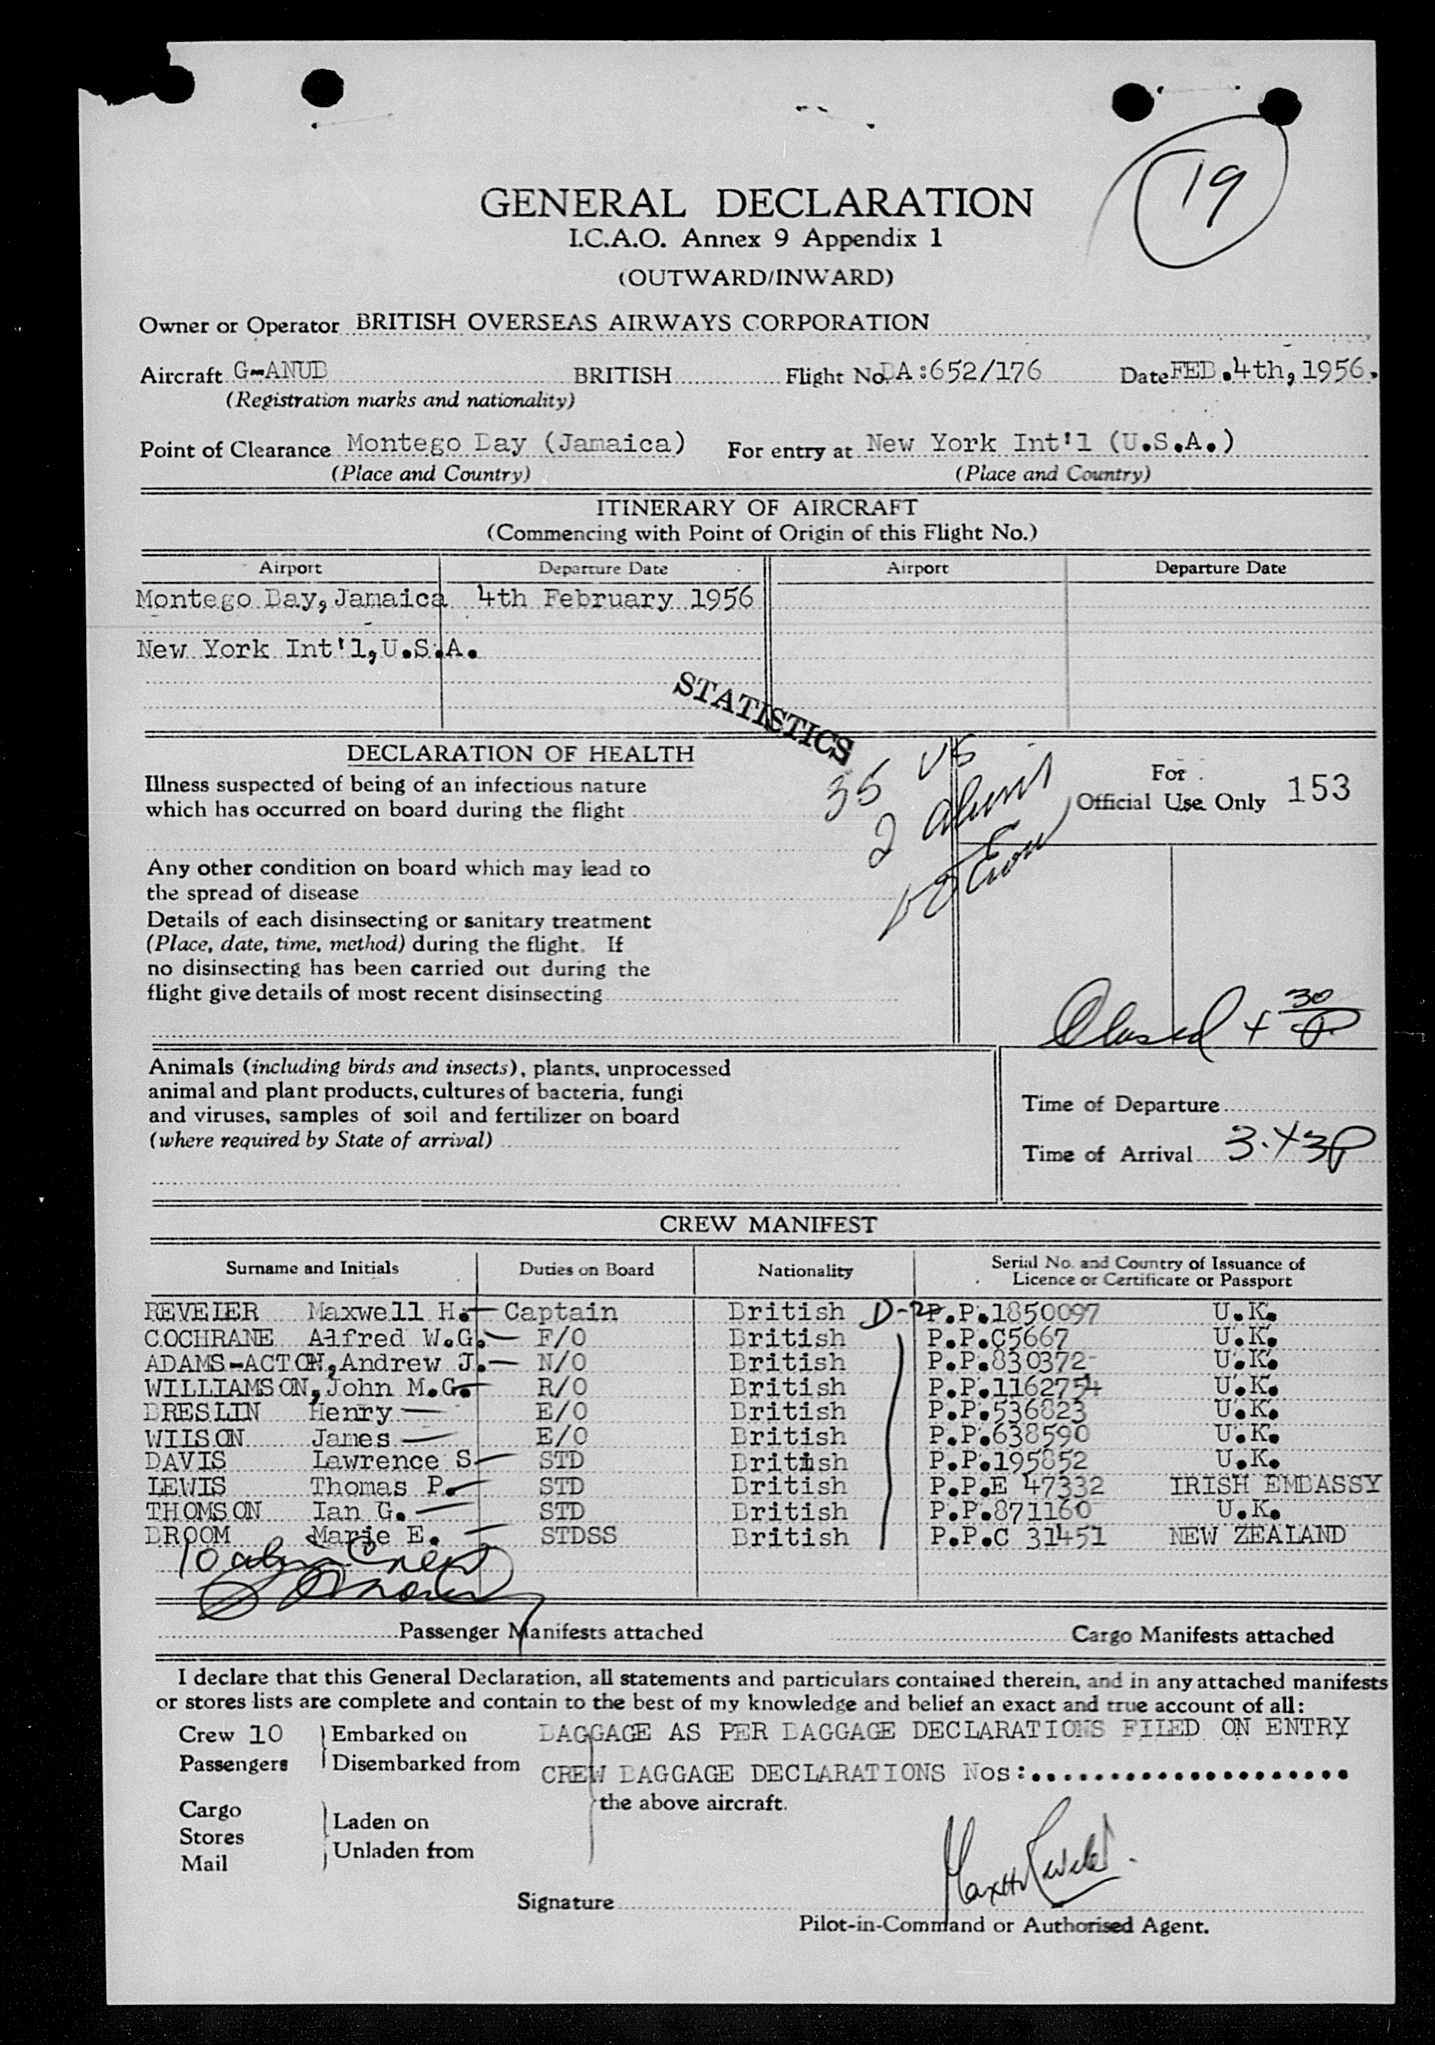 19
GENERAL DECLARATION
I.C.A.O. Annex 9 Appendix 1
(OUTWARD/INWARD)
Owner or Operator BRITISH OVERSEAS AIRWAYS CORPORATION
Aircraft G-ANUB BRITISH Flight No. BA:652/176 Date FEB.4th, 1956.
(Registration marks and nationality)
Point of Clearance Montego Bay (Jamaica) For entry at New York Int'l (U.S.A.)
(Place and Country) (Place and Country)
ITINERARY OF AIRCRAFT
(Commencing with Point of Origin of this Flight No.)
Airport Departure Date Airport Departure Date
Montego Bay, Jamaica 4th February 1956
New York Int'l, U.S.A.
STATISTICS
35 US
2 aliens
DECLARATION OF HEALTH
Illness suspected of being of an infectious nature
which has occurred on board during the flight
For
Official Use Only 153
Any other condition on board which may lead to
the spread of disease
Details of each disinsecting or sanitary treatment
(Place, date, time, method) during the flight. If
no disinsecting has been carried out during the
flight give details of most recent disinsecting
Closed 4 30 P
Animals (including birds and insects), plants, unprocessed
animal and plant products, cultures of bacteria, fungi
and viruses, samples of soil and fertilizer on board
(where required by State of arrival)
Time of Departure
Time of Arrival 3.43P
CREW MANIFEST
Surname and Initials Duties on Board Nationality Serial No. and Country of Issuance of
Licence or Certificate or Passport
REVEIER Maxwell H. Captain British D-2 P.P.1850097 U.K.
COCHRANE Alfred W.G. F/O British P.P.C5667 U.K.
ADAMS-ACTON, Andrew J. N/O British P.P.830372 U.K.
WILLIAMSON, John M.G. R/O British P.P.1162754 U.K.
BRESLIN Henry E/O British P.P.536823 U.K.
WILSON James E/O British P.P.638590 U.K.
DAVIS Lawrence S. STD British P.P.195852 U.K.
LEWIS Thomas P. STD British P.P.E 47332 IRISH EMBASSY
THOMSON Ian G. STD British P.P.871160 U.K.
BROOM Marie E. STDSS British P.P.C 31451 NEW ZEALAND
10 alien crew
Passenger Manifests attached Cargo Manifests attached
I declare that this General Declaration, all statements and particulars contained therein, and in any attached manifests
or stores lists are complete and contain to the best of my knowledge and belief an exact and true account of all:
Crew 10 Embarked on BAGGAGE AS PER BAGGAGE DECLARATIONS FILED ON ENTRY
Passengers Disembarked from CREW BAGGAGE DECLARATIONS Nos:....................
the above aircraft.
Cargo
Stores
Mail
Laden on
Unladen from
Signature
Pilot-in-Command or Authorised Agent.